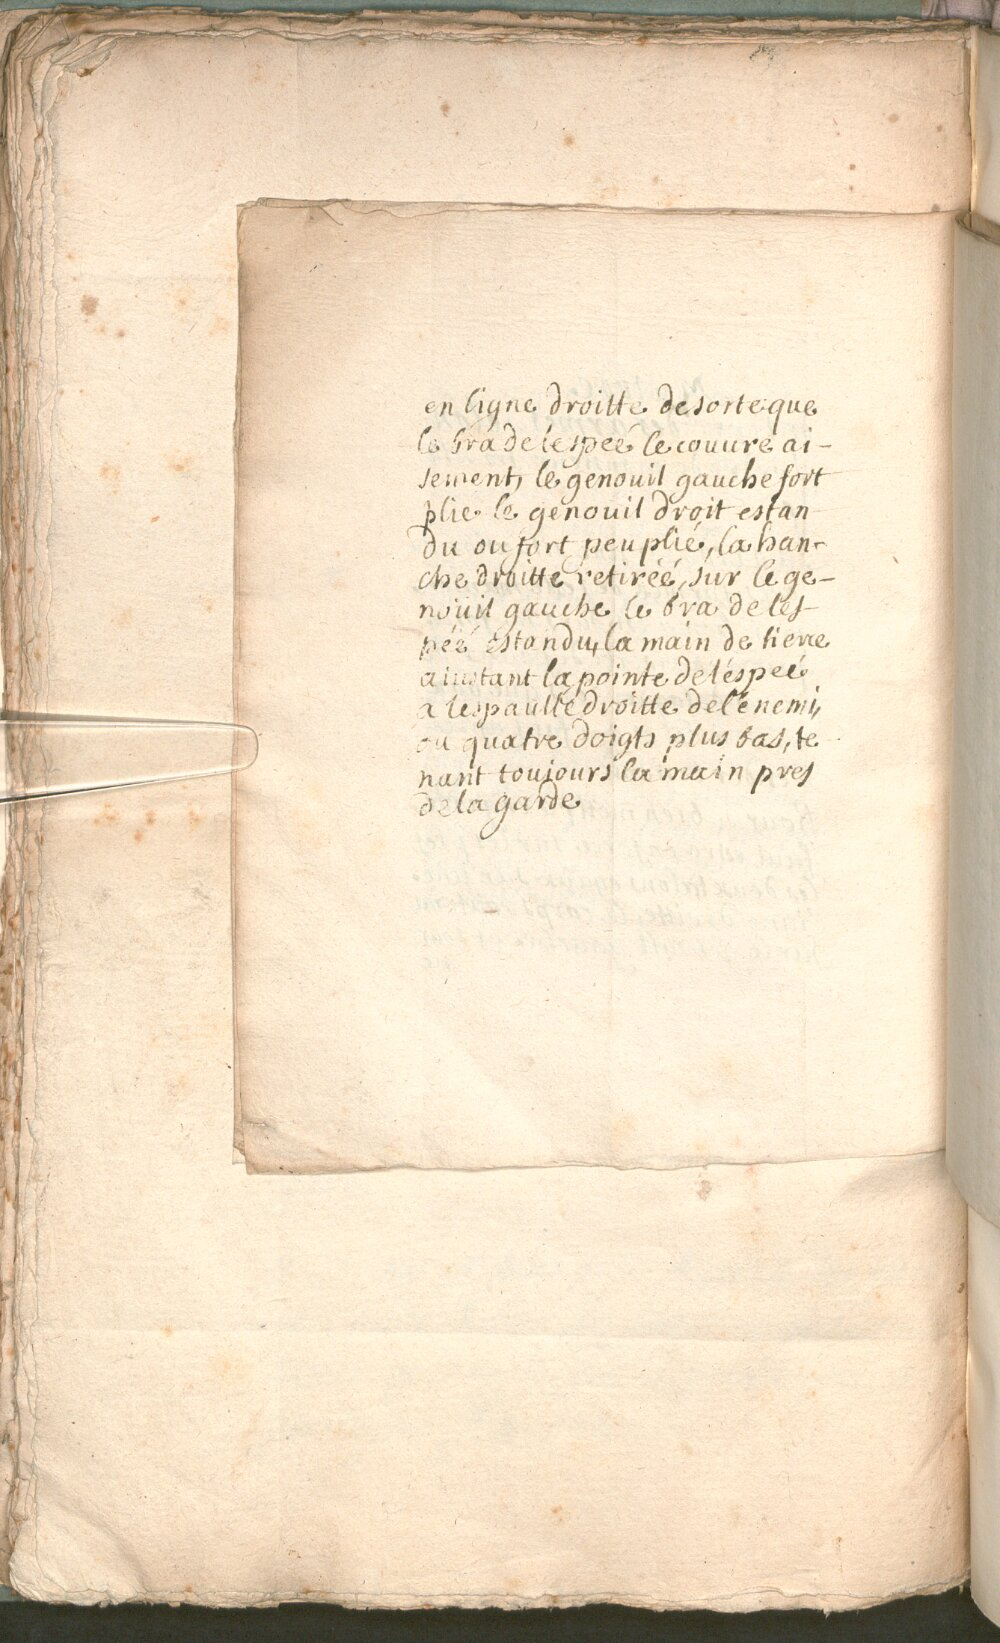 en ligne droitte de sorte que
le bra de lespeé le couure ai-
sement, le genouil gauche fort
plie le genouil droit estan
du ou fort peu plié, la han-
che droitte retiréé, sur le ge-
nouil gauche le bra de les-
péé estandu, la main de tierce
aiustant la pointe de léspeé
a lespaulle droitte de l'énemi,
ou quatre doigts plus bas, te
nant toujours la main pres
de la garde